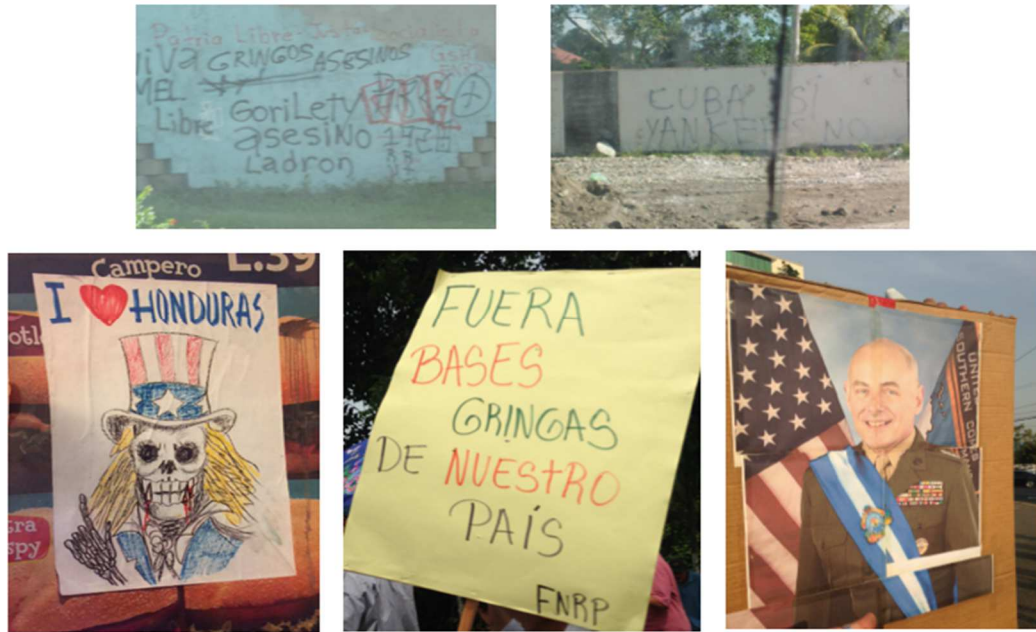 Patria Libre-
ViVa GRINGOS ASESINOS
MEL
Libre GoriLety
asesiNo
Ladron
CUBA SI
YANKEES NO
Campero L.39
I HONDURAS
FUERA
BASES
GRINGAS
DE NUESTRO
PAÍS
FNRP
UNITED
SOUTHERN